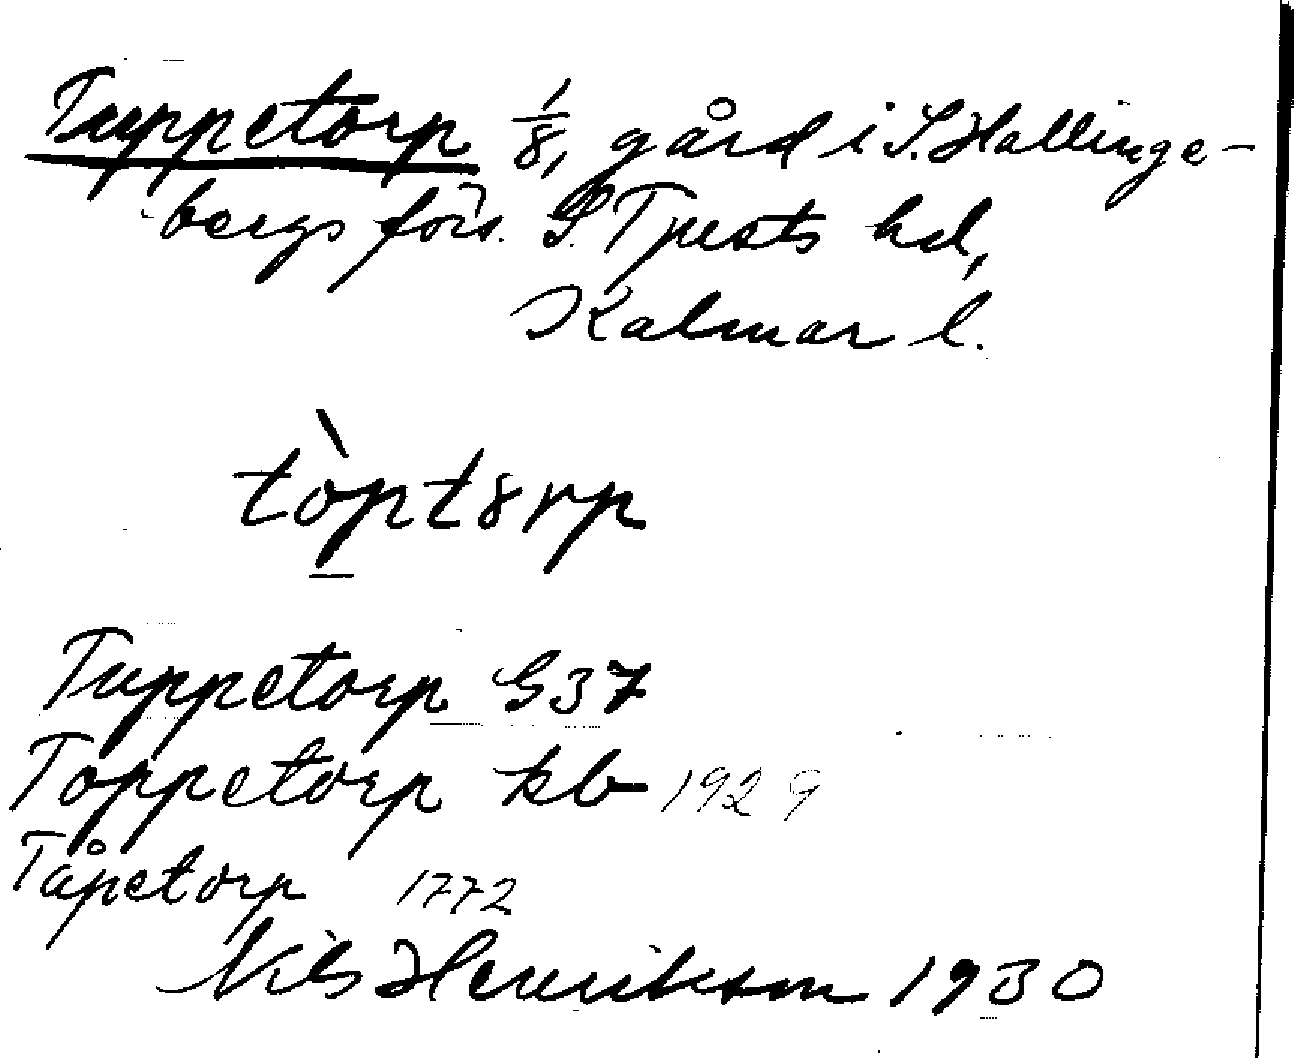 Tuppetorp 1/8, gård i S. Hallinge-
bergs förs. S. Tjusts hd,
Kalmar l.
tòptɤrp
Tuppetorp G37
Toppetorp kb 1929
Tåpetorp 1772
Nils Henrikson 1930